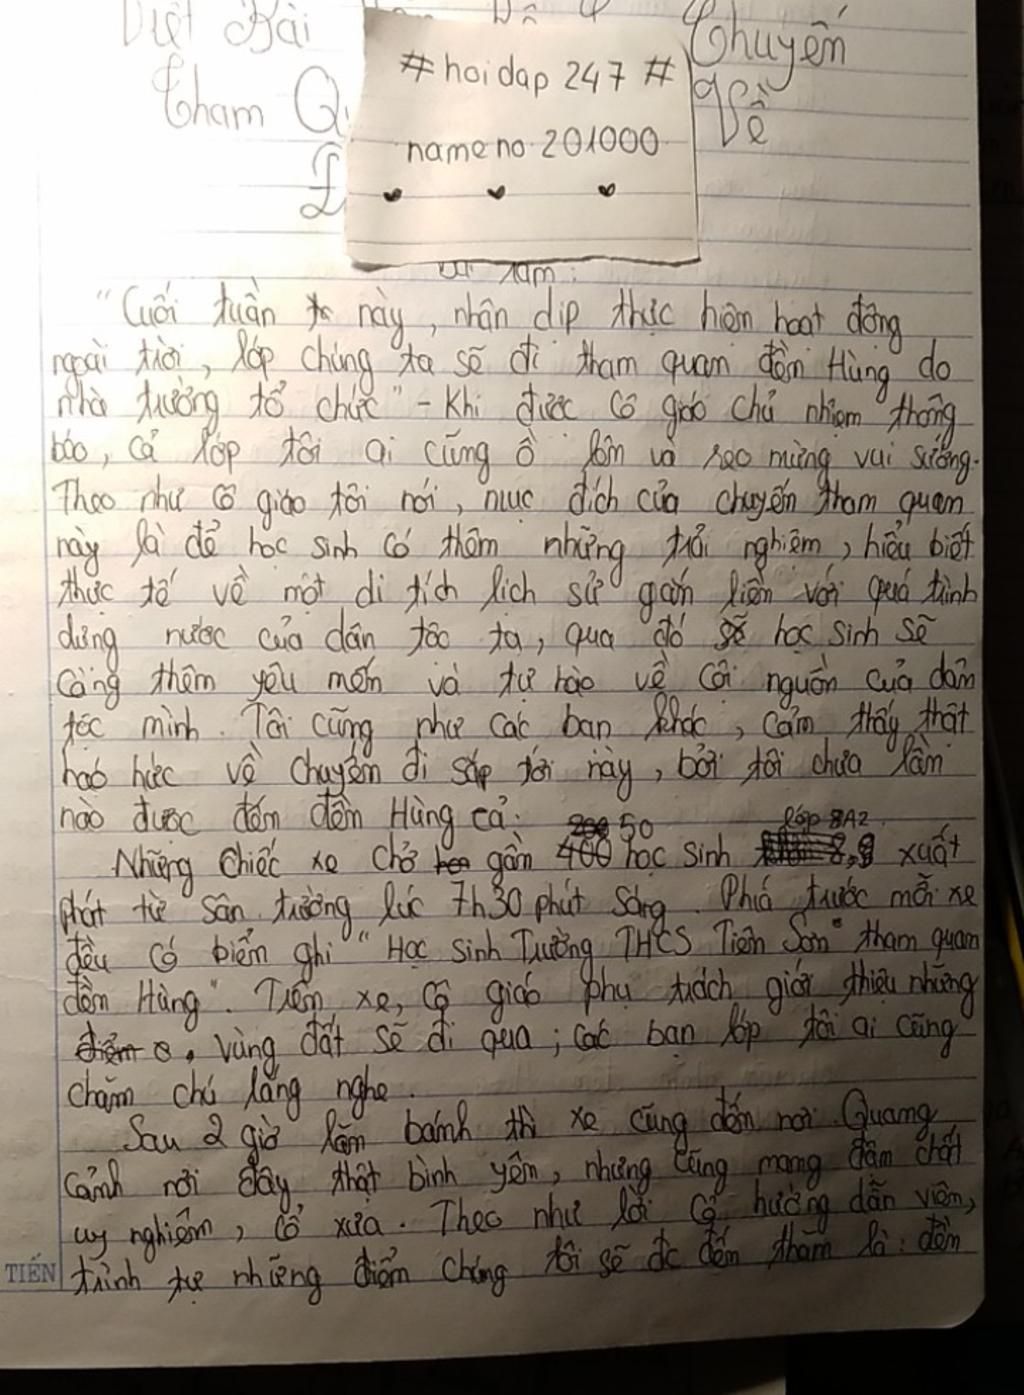 Viết Bài Chuyến
Tham Về
#hoidap 247 #
name no 201000
Bài làm:
"Cuối tuần này, nhân dịp thực hiện hoạt động
ngoài trời, lớp chúng ta sẽ đi tham quan đền Hùng do
nhà trường tổ chức" - Khi được cô giáo chủ nhiệm thông
báo, cả lớp tôi ai cũng ồ lên và reo mừng vui sướng.
Theo như cô giáo tôi nói, mục đích của chuyến tham quan
này là để học sinh có thêm những trải nghiệm, hiểu biết
thực tế về một di tích lịch sử gắn liền với quá trình
dựng nước của dân tộc ta, qua đó học sinh sẽ
càng thêm yêu mến và tự hào về cội nguồn của dân
tộc mình. Tôi cũng như các bạn khác, cảm thấy thật
háo hức về chuyến đi sắp tới này, bởi tôi chưa lần
nào được đến đền Hùng cả.
Những chiếc xe chở gần 50 học sinh lớp 8A2 xuất
phát từ sân trường lúc 7h30 phút sáng. Phía trước mỗi xe
đều có biển ghi "Học sinh Trường THCS Tiên Sơn" tham quan
đền Hùng". Trên xe, cô giáo phụ trách giới thiệu những
vùng đất sẽ đi qua; các bạn lớp tôi ai cũng
chăm chú lắng nghe.
Sau 2 giờ lăn bánh thì xe cũng đến nơi. Quang
cảnh nơi đây thật bình yên, nhưng cũng mang đậm chất
uy nghiêm, cổ xưa. Theo như lời cô hướng dẫn viên,
trình tự những điểm chúng tôi sẽ đc đến thăm là: đền
TIẾN